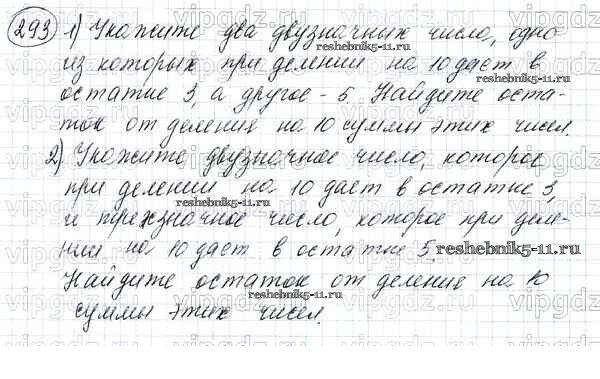 293 1) Укажите два двузначних число, одно
из которых при делении на 10 дает в
остатке 3, а другое - 5. Найдите оста-
ток от деления на 10 суммы этих чисел.
2) Укажите двузначное число, которое
при делении на 10 дает в остатке 3,
и трехзначное число, которое при деле-
нии на 10 дает в остатке 5
Найдите остаток от деления на 10
суммы этих чисел.
reshebnik5-11.ru
reshebnik5-11.ru
reshebnik5-11.ru
reshebnik5-11.ru
vipgdz.ru